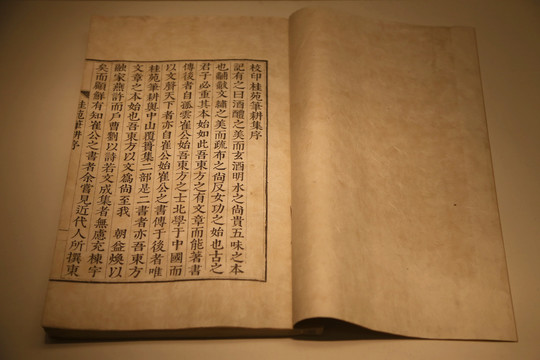 校印桂苑筆耕集序
記有之曰酒醴之美而玄酒明水之尙貴五味之本
也黼黻文繡之美而疏布之尙反女功之始也古之
君子必重其本始如此吾東方之有文章而能著書
傳後者自孤雲崔公始吾東方之士北學于中國而
以文聲天下者亦自崔公始崔公之書傳于後者唯
桂苑筆耕與中山覆簣集二部是二書者亦吾東方
文章之本始也吾東方以文爲尙至我　朝益煥以
融家燕許而戶曹劉以詩若文成集者無慮充棟宇
矣而顧鮮有知崔公之書者余嘗見近代人所撰東
桂苑筆耕序